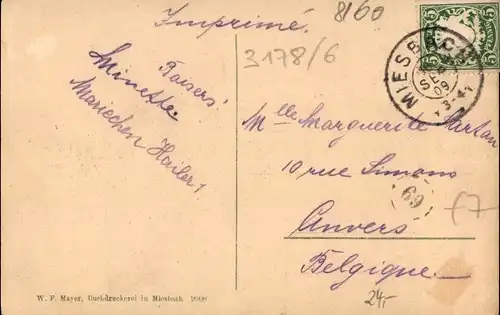 Imprimé.
8160
3178/6
5
MIESBACH
SEP
09
3-4
Kaisers!
Minette.
Mariechen Hailer!
Mlle Marguerite Sartan
10 rue Simons
69
Anvers
Belgique
24.-
W. F. Mayer, Buchdruckerei in Miesbach